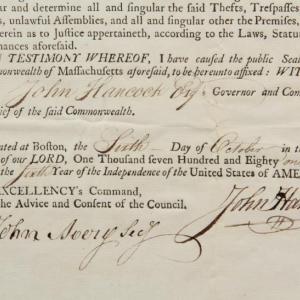 ar and determine all and singular the said Thefts, Trespasses
s, unlawful Assemblies, and all and singular other the Premises,
erein as to Justice appertaineth, according to the Laws, Statu
nances aforesaid.
TESTIMONY WHEREOF, I have caused the public Sea
onwealth of Massachusetts aforesaid, to be hereunto affixed: WIT
John Hancock Esq; Governor and Comm
ief of the said Commonwealth.
ated at Boston, the Sixth Day of October in t
of our LORD, One Thousand seven Hundred and Eighty one
the Sixth Year of the Independence of the United States of AME
XCELLENCY's Command,
the Advice and Consent of the Council.
John Han
John Avery Secy